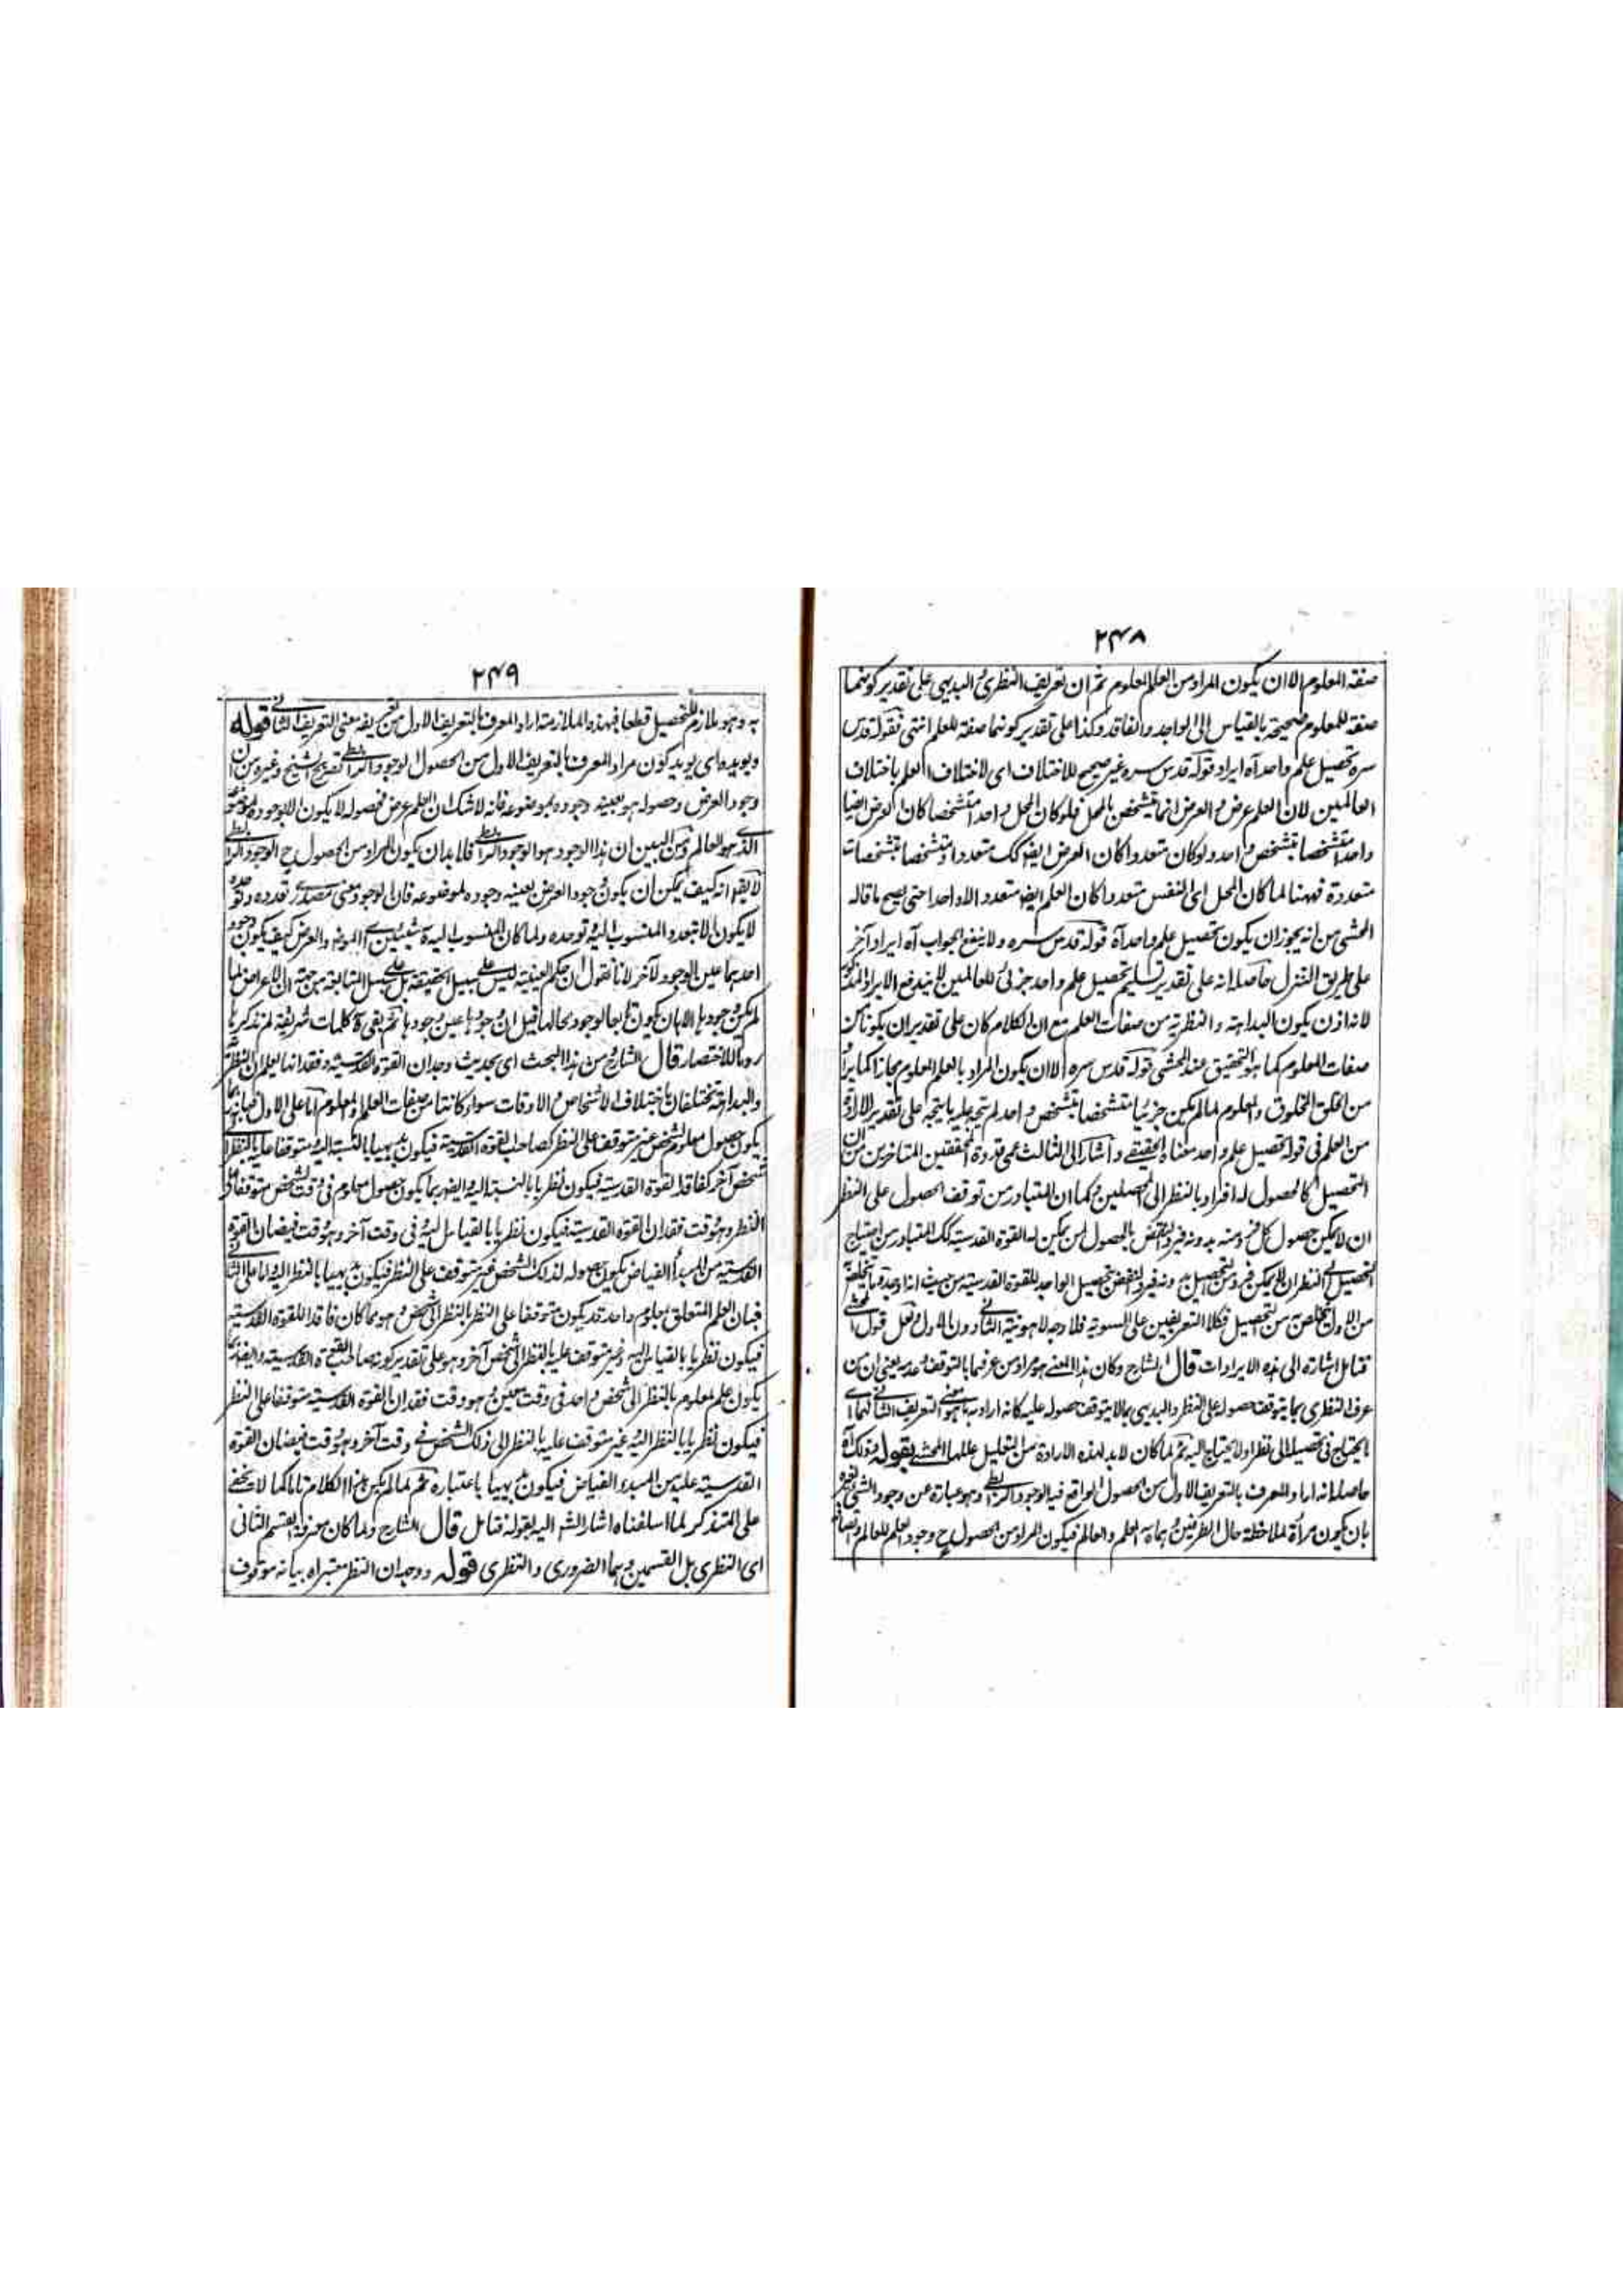 ٢٤٨
صفة المعلوم الا ان يكون المراد من العلم المعلوم ثم ان تعريف النظري و البديهي على تقدير كونهما
صفة للمعلوم صحيحة بالقياس الى الواجد والفاقد وكذا على تقدير كونهما صفة للعلم انتهى فقوله قدس
سره تحصيل علم واحد آه ايراد قوله قدس سره غير صحيح للاختلاف اى لاختلاف العلم باختلاف
العالمين لان العلم عرض و العرض انما يتشخص بالمحل فلو كان المحل واحدا متشخصا كان العرض ايضا
واحدا متشخصا بتشخص واحد ولو كان متعددا كان العرض ايضا كك متعددا و متشخصا بتشخصات
متعددة فههنا لما كان المحل اى النفس متعددا كان العلم ايضا متعددا لا واحدا حتى يصح ما قاله
المحشى من انه يجوز ان يكون تحصيل علم واحد آه قوله قدس سره ولا ينفع الجواب آه ايراد آخر
على طريق التنزل حاصله انه على تقدير تسليم تحصيل علم واحد جزئى للعالمين لا يندفع الايراد المذكور
لانه اذن يكون البداهة و النظرية من صفات العلم مع ان الكلام كان على تقدير ان يكونا من
صفات المعلوم كما هو التحقيق عند المحشى قوله قدس سره الا ان يكون المراد بالعلم المعلوم مجازا كما يراد
من الخلق المخلوق و المعلوم لما لم يكن جزئيا متشخصا بتشخص واحد لم يتجه عليه ما يتجه على تقدير الارادة
من العلم فى قوله تحصيل علم واحد معناه الحقيقى و اشار الى الثالث عمى قدوة المحققين المتاخرين من ان
التحصيل كالحصول له افراد بالنظر الى المحصلين فكما ان المتبادر من توقف الحصول على النظر
ان لا يمكن حصول كل فرد منه بدونه فيرد النقض بالحصول لمن يكون له القوة القدسية كك المتبادر من احتياج
التحصيل الى النظر ان لا يمكن فرد من التحصيل بدونه فيرد النقض بتحصيل الواجد للقوة القدسية من حيث انه واجد
من الاول متخلصة من التحصيل فكلا التعريفين على السوية فلا وجه لاهونية الثانى دون الاول و لعل قول المحشى
فتأمل اشارة الى هذه الايرادات قال الشارح وكان هذا المعنى هو مراد من عرفهما بالتوقف و عدمه يعنى ان من
عرف النظرى بما يتوقف حصوله على النظر و البديهى بما لا يتوقف حصوله عليه كانه اراد به ما هو معنى التعريف الثانى لهما اى
ما يحتاج فى تحصيله الى نظر او لا يحتاج اليه ثم لما كان لا بد لهذه الارادة من التعليل عللها المحشى بقوله و ذلك آه
حاصله انه اراد المعرف بالتعريف الاول من الحصول الواقع فيه الوجود الرابطى وهو عبارة عن وجود الشئ لغيره
بان يكون مرآة لملاحظة حال الطرفين و هما ههنا العلم و العالم فيكون المراد من الحصول ح وجود العلم للعالم و اتصافه
٢٤٩
به وهو ملازم للتحصيل قطعا فبهذه الملازمة اراد المعرف بالتعريف الاول من تعريفه معنى التعريف الثانى قوله
و يؤيده اى يؤيد كون مراد المعرف بالتعريف الاول من الحصول الوجود الرابطى تصريح الشيخ وغيره من ان
وجود العرض و حصوله هو بعينه وجوده لموضوعه فانه لا شك ان العلم عرض فحصوله لا يكون الا وجوده لموضوعه
الذى هو العالم ومن البين ان هذا الوجود هو الوجود الرابطى فلا بد ان يكون المراد من الحصول ح الوجود الرابطى
لا يقال انه كيف يمكن ان يكون وجود العرض بعينه وجوده لموضوعه فان الوجود معنى مصدرى تعدده و توحده
لا يكون الا بتعدد المنسوب اليه و توحده ولما كان المنسوب اليه شيئين اى الموضوع والعرض كيف يكون وجود
احدهما عين الوجود للآخر لانا نقول ان حكم العينية ليس على سبيل الحقيقة بل على سبيل المتابعة من جهة ان الاعراض لما
لم يكن وجودها الا بان يكون تابعا لوجود محالها قيل ان وجودها عين وجودها ثم بقى ههنا كلمات شريفة لم نذكرها
روما للاختصار قال الشارح و من هذا البحث اى بحديث وجدان القوة القدسية و فقدانها يعلم ان النظرية
والبداهة تختلفان باختلاف الاشخاص و الاوقات سواء كانتا من صفات العلم و المعلوم اما على الاول فبانه
يكون حصول معلوم لشخص غير متوقف على النظر كصاحب القوة القدسية فيكون بديهيا بالنسبة اليه و متوقفا عليه بالنظر الى
شخص آخر كفاقد القوة القدسية فيكون نظريا بالنسبة اليه و ايضا ربما يكون حصول معلوم فى وقت لشخص متوقفا على
النظر و هو وقت فقدان القوة القدسية فيكون نظريا بالقياس اليه وفى وقت آخر و هو وقت فيضان القوة
القدسية من المبدأ الفياض يكون حصوله لذلك الشخص غير متوقف على النظر فيكون بديهيا بالنظر اليه و اما على الثانى
فبان العلم المتعلق بمعلوم واحد قد يكون متوقفا على النظر بالنظر الى شخص و هو ما كان فاقدا للقوة القدسية
فيكون نظريا بالقياس اليه و غير متوقف عليه بالنظر الى شخص آخر و هو على تقدير كونه صاحب القوة القدسية و ايضا ربما
يكون علم معلوم بالنظر الى شخص واحد فى وقت معين و هو وقت فقدان القوة القدسية متوقفا على النظر
فيكون نظريا بالنظر اليه و غير متوقف عليه بالنظر الى ذلك الشخص فى وقت آخر و هو وقت فيضان القوة
القدسية عليه من المبدء الفياض فيكون بديهيا باعتباره ثم لما لم يكن هذا الكلام تاما كما لا يخفى
على المتذكر لما اسلفناه اشار الشم اليه بقوله فتامل قال الشارح ولما كان معرفة القسم الثانى
اى النظرى بل القسمين وهما الضرورى و النظرى قوله و وجدان النظر معتبرا ه بيانه موقوف